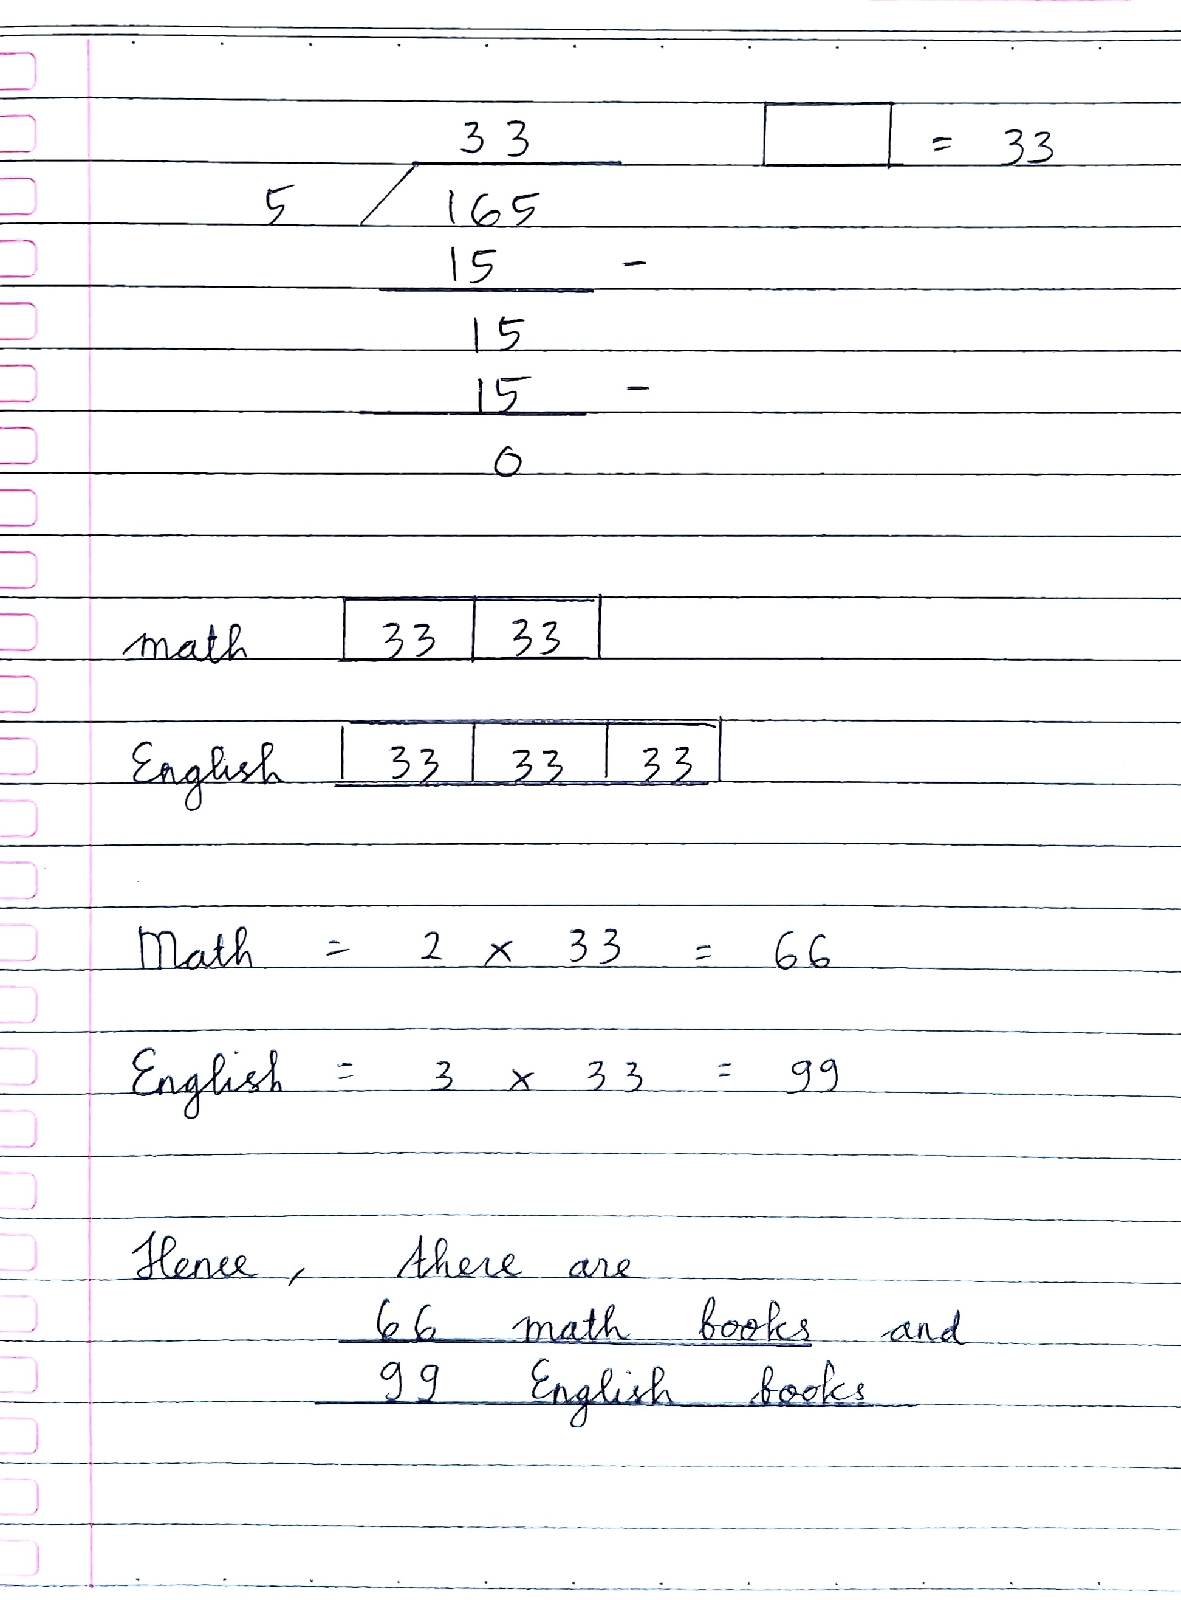 33
= 33
5 / 165
15 -
15
15 -
0
math 33 33
English 33 33 33
Math = 2 × 33 = 66
English = 3 × 33 = 99
Hence, there are
66 math books and
99 English books